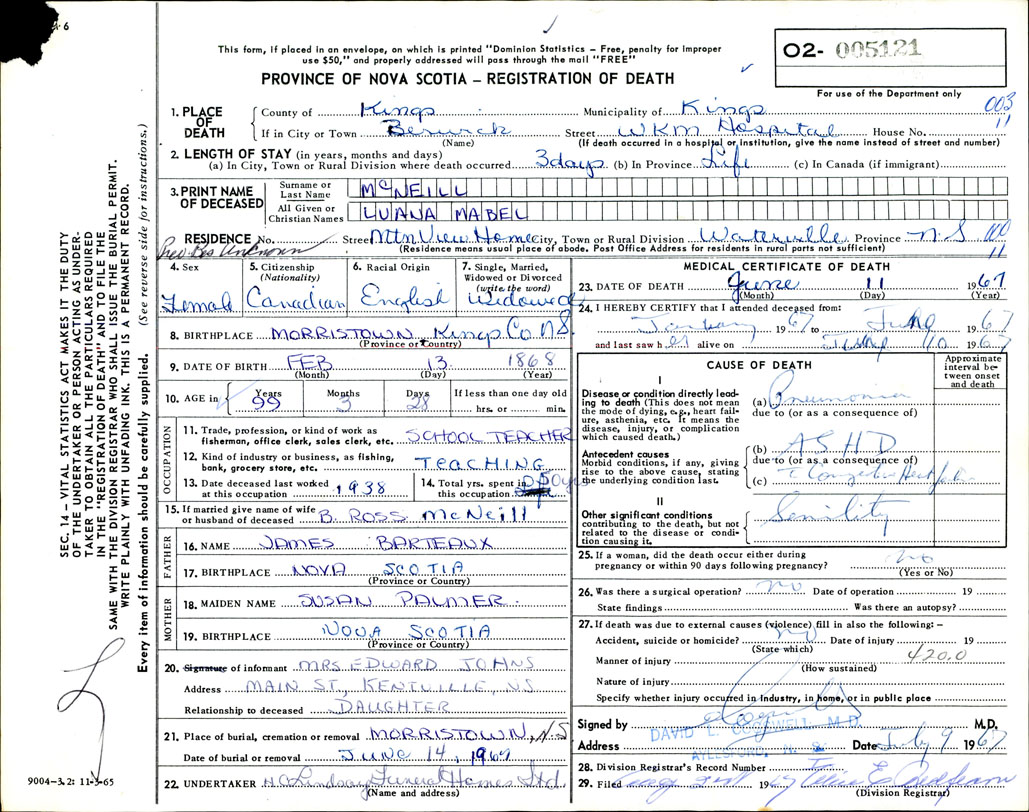 6
This form, if placed in an envelope, on which is printed "Dominion Statistics – Free, penalty for improper
use $50," and properly addressed will pass through the mail "FREE"
PROVINCE OF NOVA SCOTIA – REGISTRATION OF DEATH
O2- 005121
For use of the Department only
SEC. 14 – VITAL STATISTICS ACT MAKES IT THE DUTY
OF THE UNDERTAKER OR PERSON ACTING AS UNDER-
TAKER TO OBTAIN ALL THE PARTICULARS REQUIRED
IN THE "REGISTRATION OF DEATH" AND TO FILE THE
SAME WITH THE DIVISION REGISTRAR WHO SHALL ISSUE THE BURIAL PERMIT.
WRITE PLAINLY WITH UNFADING INK. THIS IS A PERMANENT RECORD.
Every item of information should be carefully supplied. (See reverse side for instructions.)
1. PLACE OF DEATH County of Kings Municipality of Kings 003
11
If in City or Town Berwick Street WKM Hospital House No.
(Name) (If death occurred in a hospital or institution, give the name instead of street and number)
2. LENGTH OF STAY (in years, months and days)
(a) In City, Town or Rural Division where death occurred 3 days (b) In Province Life (c) In Canada (if immigrant)
3. PRINT NAME OF DECEASED Surname or Last Name McNEILL
All Given or Christian Names LUANA MABEL
RESIDENCE No. Street Mtn View Home City, Town or Rural Division Waterville Province N S 100
11
Prev Res Unknown (Residence means usual place of abode. Post Office Address for residents in rural parts not sufficient)
4. Sex Female
5. Citizenship (Nationality) Canadian
6. Racial Origin English
7. Single, Married, Widowed or Divorced (write the word) widowed
8. BIRTHPLACE MORRISTOWN Kings Co NS.
(Province or Country)
9. DATE OF BIRTH FEB 13 1868
(Month) (Day) (Year)
10. AGE in Years 99 Months 3 Days 28 If less than one day old
hrs. or min.
OCCUPATION
11. Trade, profession, or kind of work as fisherman, office clerk, sales clerk, etc. SCHOOL TEACHER
12. Kind of industry or business, as fishing, bank, grocery store, etc. TEACHING
13. Date deceased last worked at this occupation 1938
14. Total yrs. spent in this occupation
15. If married give name of wife or husband of deceased B. ROSS McNeill
FATHER
16. NAME JAMES BARTEAUX
17. BIRTHPLACE NOVA SCOTIA
(Province or Country)
MOTHER
18. MAIDEN NAME SUSAN PALMER
19. BIRTHPLACE NOVA SCOTIA
(Province or Country)
20. Signature of informant MRS EDWARD JOHNS
Address MAIN ST, KENTVILLE, NS
Relationship to deceased DAUGHTER
21. Place of burial, cremation or removal MORRISTOWN, N.S
Date of burial or removal JUNE 14, 1967
22. UNDERTAKER Lindsay Funeral Homes Ltd.
(Name and address)
9004-3.2: 11-3-65
MEDICAL CERTIFICATE OF DEATH
23. DATE OF DEATH June 11 1967
(Month) (Day) (Year)
24. I HEREBY CERTIFY that I attended deceased from:
January 1967 to June 1967
and last saw her alive on June 10 1967
CAUSE OF DEATH
Approximate interval between onset and death
I
Disease or condition directly leading to death (This does not mean the mode of dying, e.g., heart failure, asthenia, etc. It means the disease, injury, or complication which caused death.)
(a) Pneumonia
due to (or as a consequence of)
Antecedent causes
Morbid conditions, if any, giving rise to the above cause, stating the underlying condition last.
(b) ASHD
due to (or as a consequence of)
(c)
II
Other significant conditions contributing to the death, but not related to the disease or condition causing it.
Senility
25. If a woman, did the death occur either during pregnancy or within 90 days following pregnancy? no
(Yes or No)
26. Was there a surgical operation? no Date of operation 19
State findings Was there an autopsy?
27. If death was due to external causes (violence) fill in also the following: –
Accident, suicide or homicide? no Date of injury 19
(State which)
Manner of injury 420.0
(How sustained)
Nature of injury
Specify whether injury occurred in industry, in home, or in public place
Signed by M.D.
DAVID L. M.D.
Address AYLESFORD, N. S. Date July 9 1967
28. Division Registrar's Record Number
29. Filed 1967
(Division Registrar)